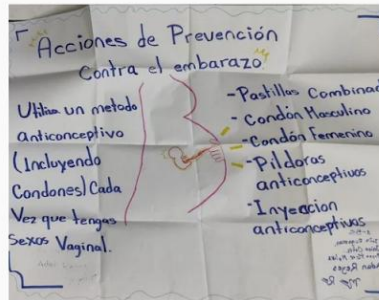 Acciones de Prevención
Contra el embarazo
Utiliza un metodo
anticonceptivo
(Incluyendo
Condones) Cada
Vez que tengas
Sexos Vaginal.
-Pastillas Combinad
-Condón Masculino
-Condón Femenino
-Pildoras
anticonceptivas
-Inyeccion
anticonceptivas